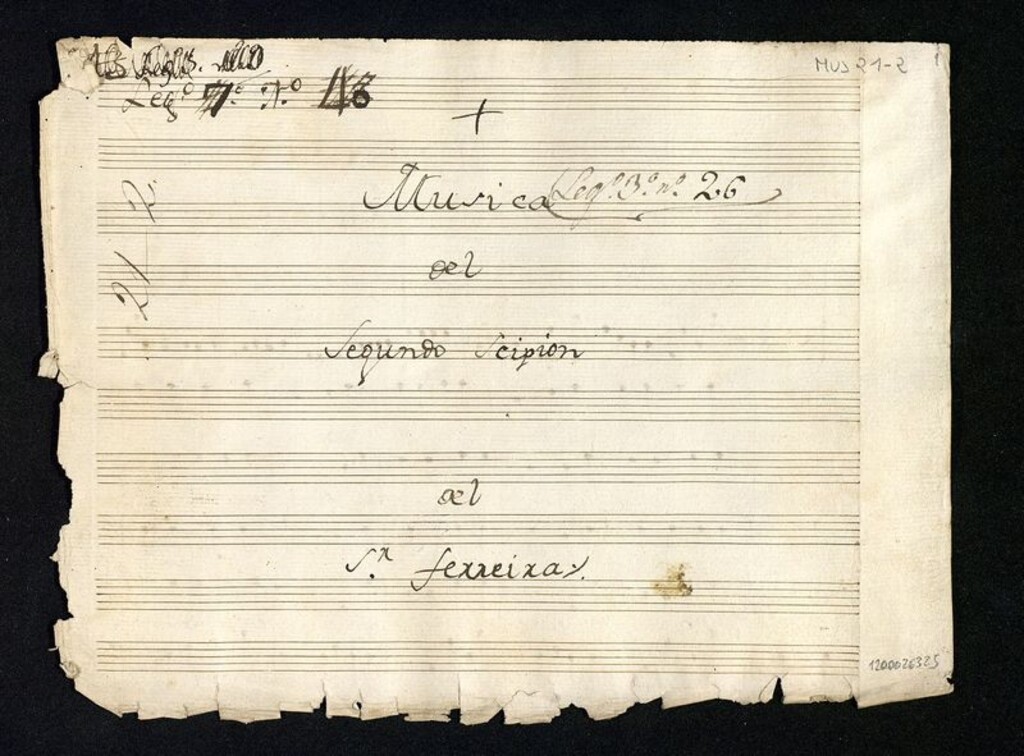 MUS 21-2
1
Leg.º 7.º N.º 43
+
Musica Leg.º 3.º n.º 26
del
Segundo Scipion
del
S.r ferreira
21 2.
1200026325